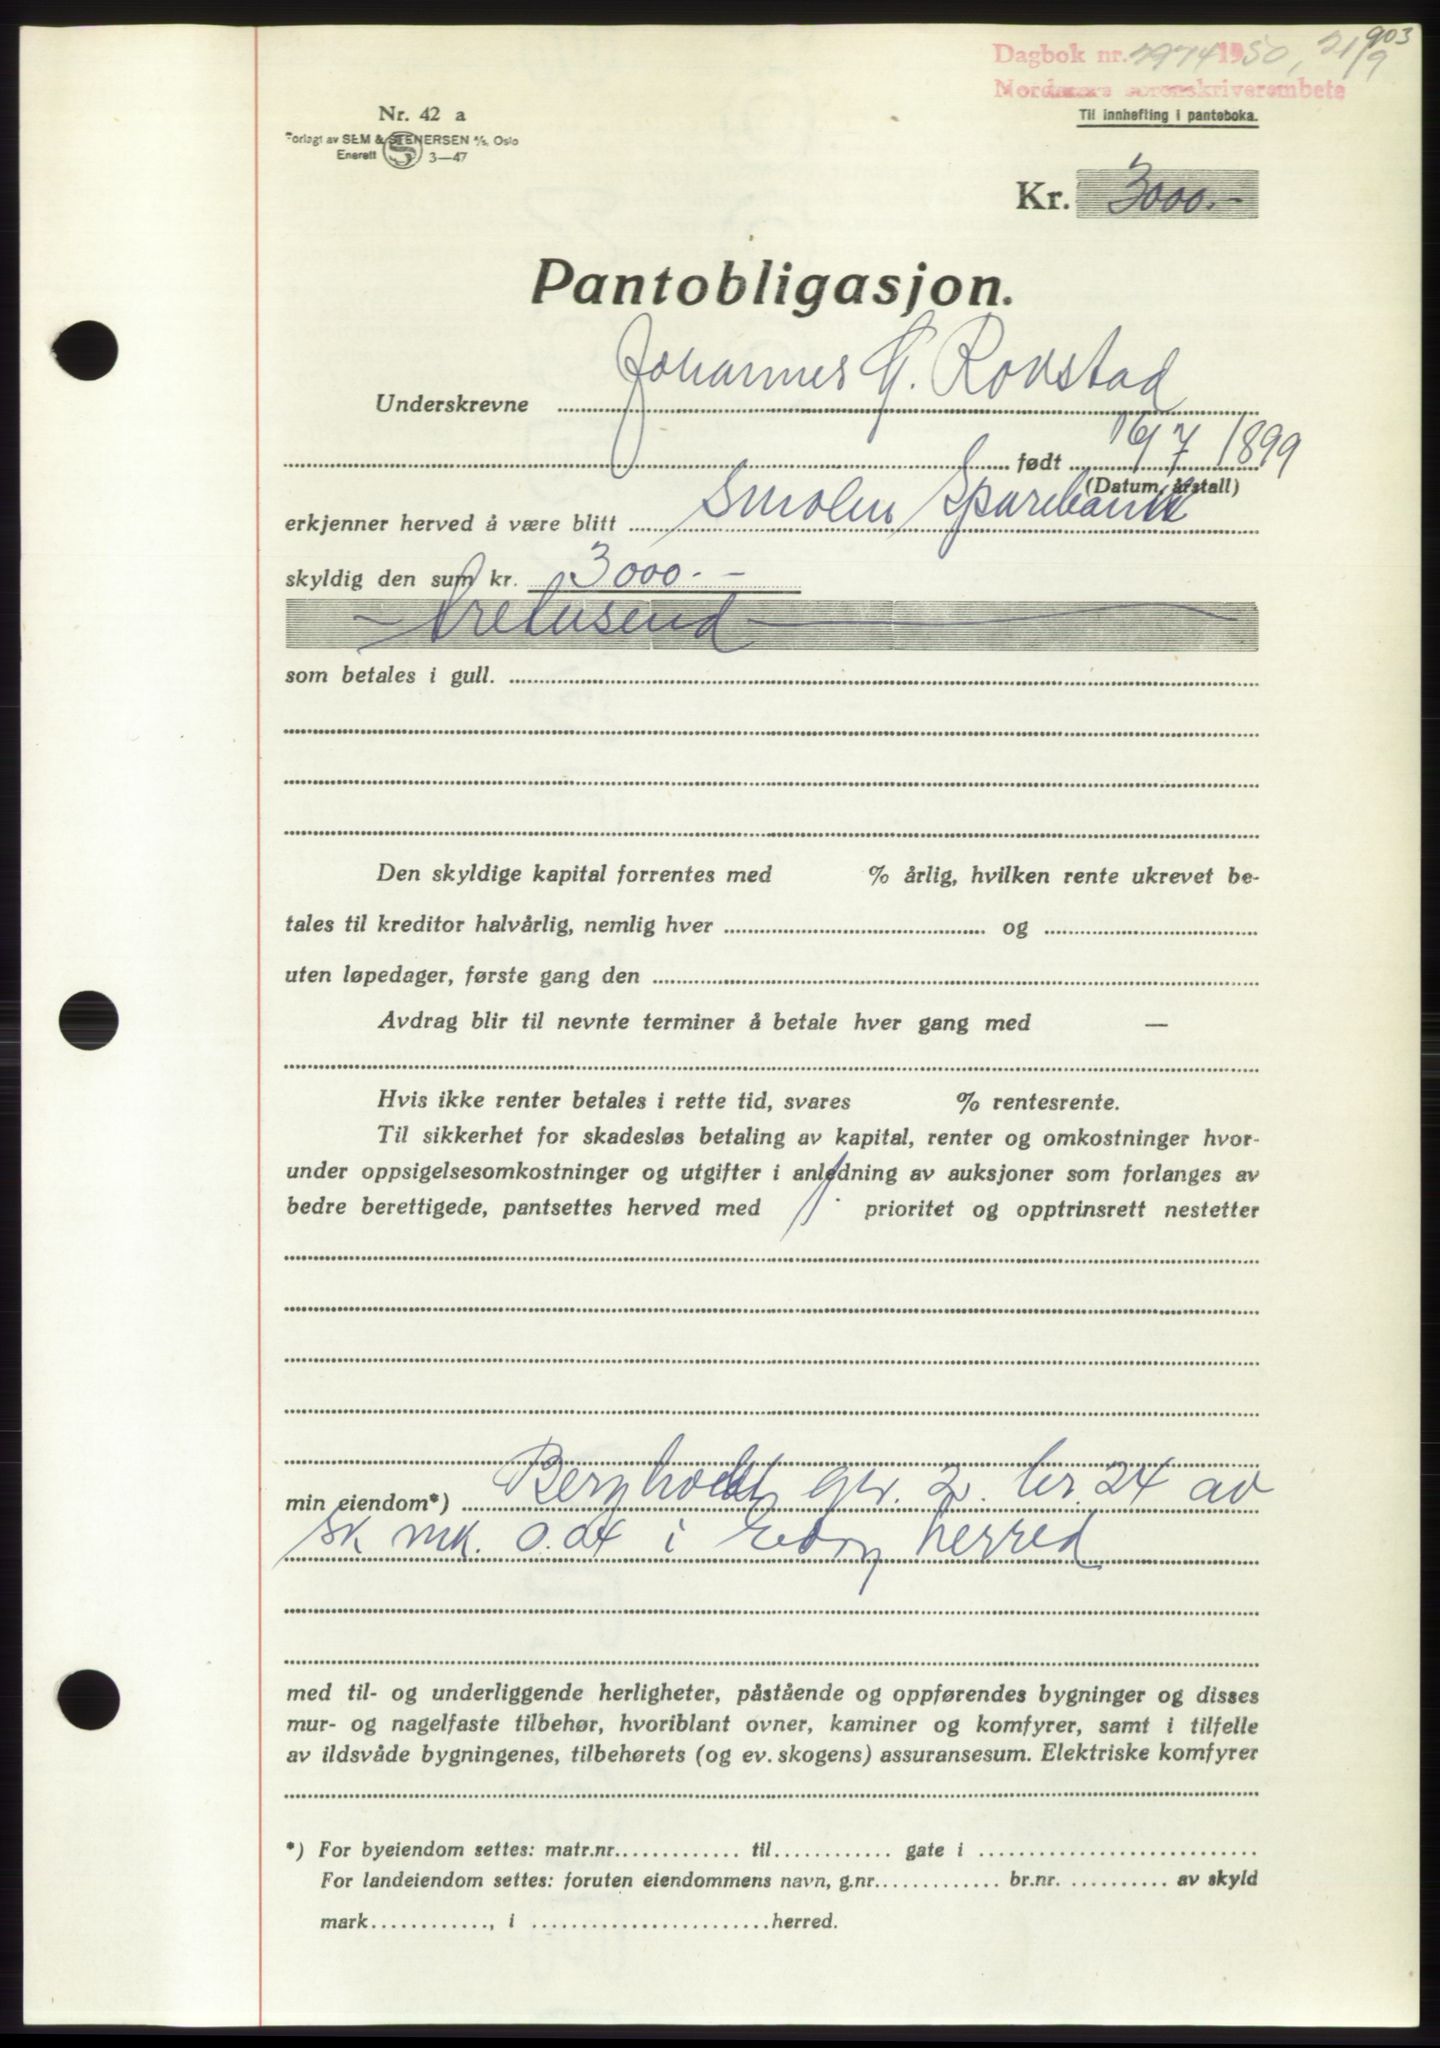 903
Dagbok nr. 2974 1950, 21/9
Nordmøre sorenskriverembete
Nr. 42 a
Til innhefting i panteboka.
Forlagt av SEM & STENERSEN A/S, Oslo
Enerett S 3—47
Kr. 3000.-
Pantobligasjon.
Underskrevne Johannes G. Rovstad
født 16/7 1899
(Datum, årstall)
erkjenner herved å være blitt Smolen Sparebank
skyldig den sum kr. 3000.-
- Tretusend -
som betales i gull.
Den skyldige kapital forrentes med % årlig, hvilken rente ukrevet be-
tales til kreditor halvårlig, nemlig hver og
uten løpedager, første gang den
Avdrag blir til nevnte terminer å betale hver gang med —
Hvis ikke renter betales i rette tid, svares % rentesrente.
Til sikkerhet for skadesløs betaling av kapital, renter og omkostninger hvor-
under oppsigelsesomkostninger og utgifter i anledning av auksjoner som forlanges av
bedre berettigede, pantsettes herved med 1. prioritet og opptrinsrett nestetter
min eiendom*) gr. 2. br. 24 av
sk mk. 0.04 i Edøy herred
med til- og underliggende herligheter, påstående og oppførendes bygninger og disses
mur- og nagelfaste tilbehør, hvoriblant ovner, kaminer og komfyrer, samt i tilfelle
av ildsvåde bygningenes, tilbehørets (og ev. skogens) assuransesum. Elektriske komfyrer
*) For byeiendom settes: matr.nr. til gate i
For landeiendom settes: foruten eiendommens navn, g.nr. br.nr. av skyld
mark , i herred.